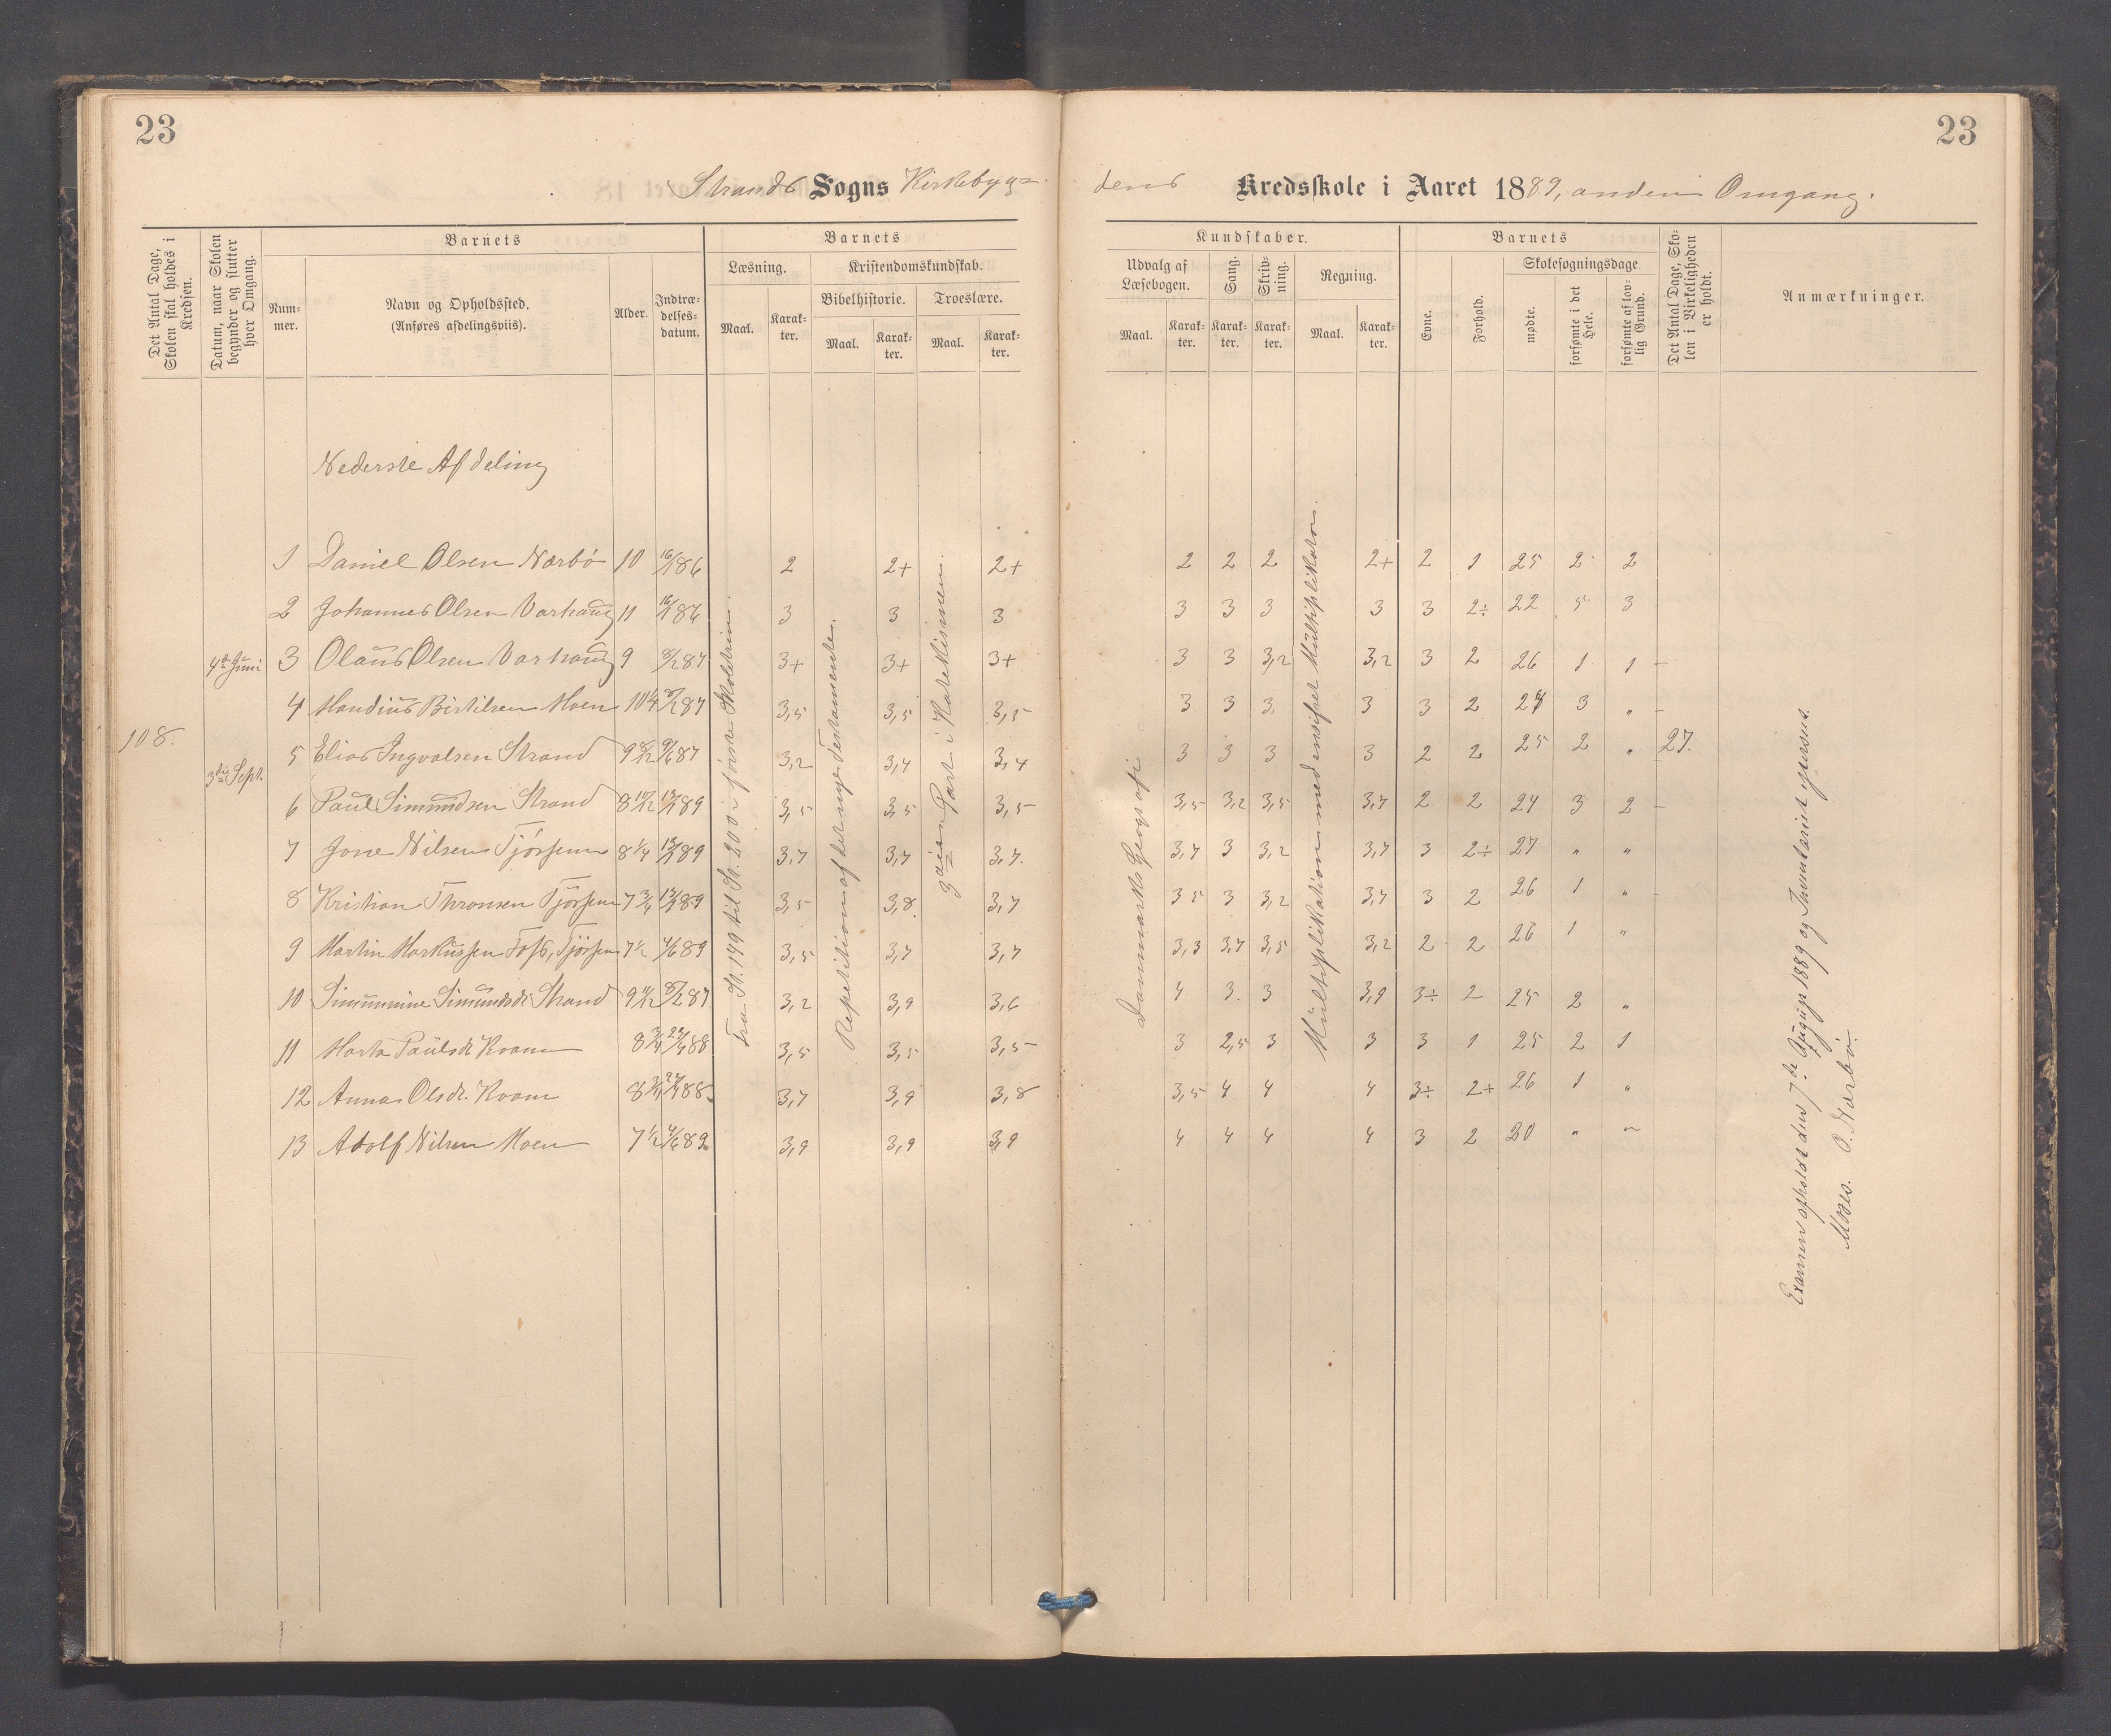 23
23
Strands Sogns Kirkebyg=
dens Kredsskole i Aaret 1889, anden Omgang.
Det Antal Dage, Skolen skal holdes i Kredsen.
Datum, naar Skolen begynder og slutter hver Omgang.
Barnets
Num-mer.
Navn og Opholdssted. (Anføres afdelingsviis).
Alder.
Indtræ-delses-datum.
Barnets
Læsning.
Maal.
Karak-ter.
Kristendomskundskab.
Bibelhistorie.
Maal.
Karak-ter.
Troeslære.
Maal.
Karak-ter.
Kundskaber.
Udvalg af Læsebogen.
Maal.
Karak-ter.
Sang.
Karak-ter.
Skriv-ning.
Karak-ter.
Regning.
Maal.
Karak-ter.
Barnets
Evne.
Forhold.
Skolesøgningsdage.
mødte.
forsømte i det Hele.
forsømte af lov-lig Grund.
Det Antal Dage, Sko-len i Virkeligheden er holdt.
Anmærkninger.
Nederste Afdeling
108.
4de Juni
3die Sept.
1 Daniel Olsen Nærbø 10 16/1 86 2 2+ 2+ 2 2 2 2+ 2 1 25 2 2
2 Johannes Olsen Varhaug 11 16/1 86 3 3 3 3 3 3 3 3 2÷ 22 5 3
3 Olaus Olsen Varhaug 9 8/2 87 3+ 3+ 3+ 3 3 3,2 3,2 3 2 26 1 1
4 Moen 10 1/4 8/2 87 3,5 3,5 3,5 3 3 3 3 3 2 24 3 "
5 Elias Ingvalsen Strand 9 8/12 9/6 87 3,2 3,4 3,4 3 3 3 3 2 2 25 2 " 27.
6 Paul Simundsen Strand 8 10/12 89 3,5 3,5 3,5 3,5 3,2 3,5 3,7 2 2 24 3 2
7 Jone Nilsen Tjøssem 8 1/4 89 3,7 3,7 3,7. 3,7 3 3,2 3,7 3 2÷ 27 " "
8 Kristian Thronsen Tjøssem 7 3/4 89 3,5 3,8 3,7 3 5 3 3,2 3,7 3 2 26 1 "
9 Martin Markussen Foss, Tjøssem 7 1/2 4/6 89 3,5 3,7 3,7 3,3 3,7 3,5 3,2 2 2 26 1 "
10 Simunmine Simundsdt Strand 9 11/12 8/2 87 3,2 3,9 3,6 4 3 3 3,9 3÷ 2 25 2 "
11 Marta Paulsdt Kvam 8 3/4 88 3,5 3,5 3,5 3 2,5 3 3 3 1 25 2 1
12 Anna Olsdt. Kvam 8 3/4 88 3,7 3,9 3,8 3,5 4 4 4 3÷ 2+ 26 1 "
13 Adolf Nilsen Moen 7 1/2 4/6 89 3,9 3,9 3,9 4 4 4 4 3 2 20 " "
Fra St. 149 til St. 200 i første Skoletrin.
Repetition af det nye Testamente.
3die Part i Katekismen.
Danmarks Geografi
Multiplikation med ensifret Multiplikator.
Examen afholdt den 7de August 1889 og Inventariet efterseet.
O. Nærbø.